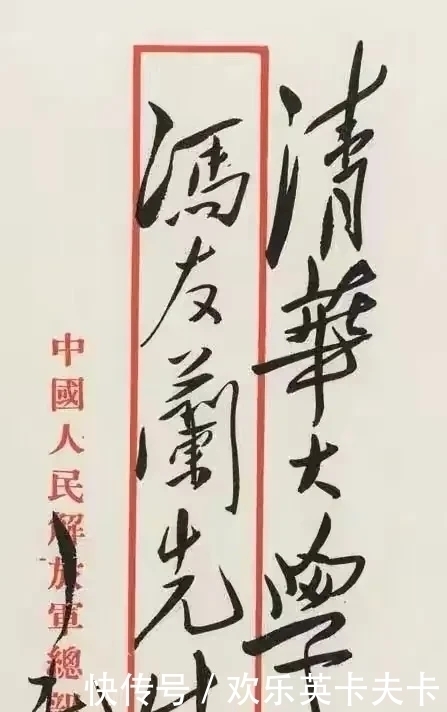 清華大學
馮友蘭先生
中國人民解放軍總部
快传号/欢乐英卡夫卡